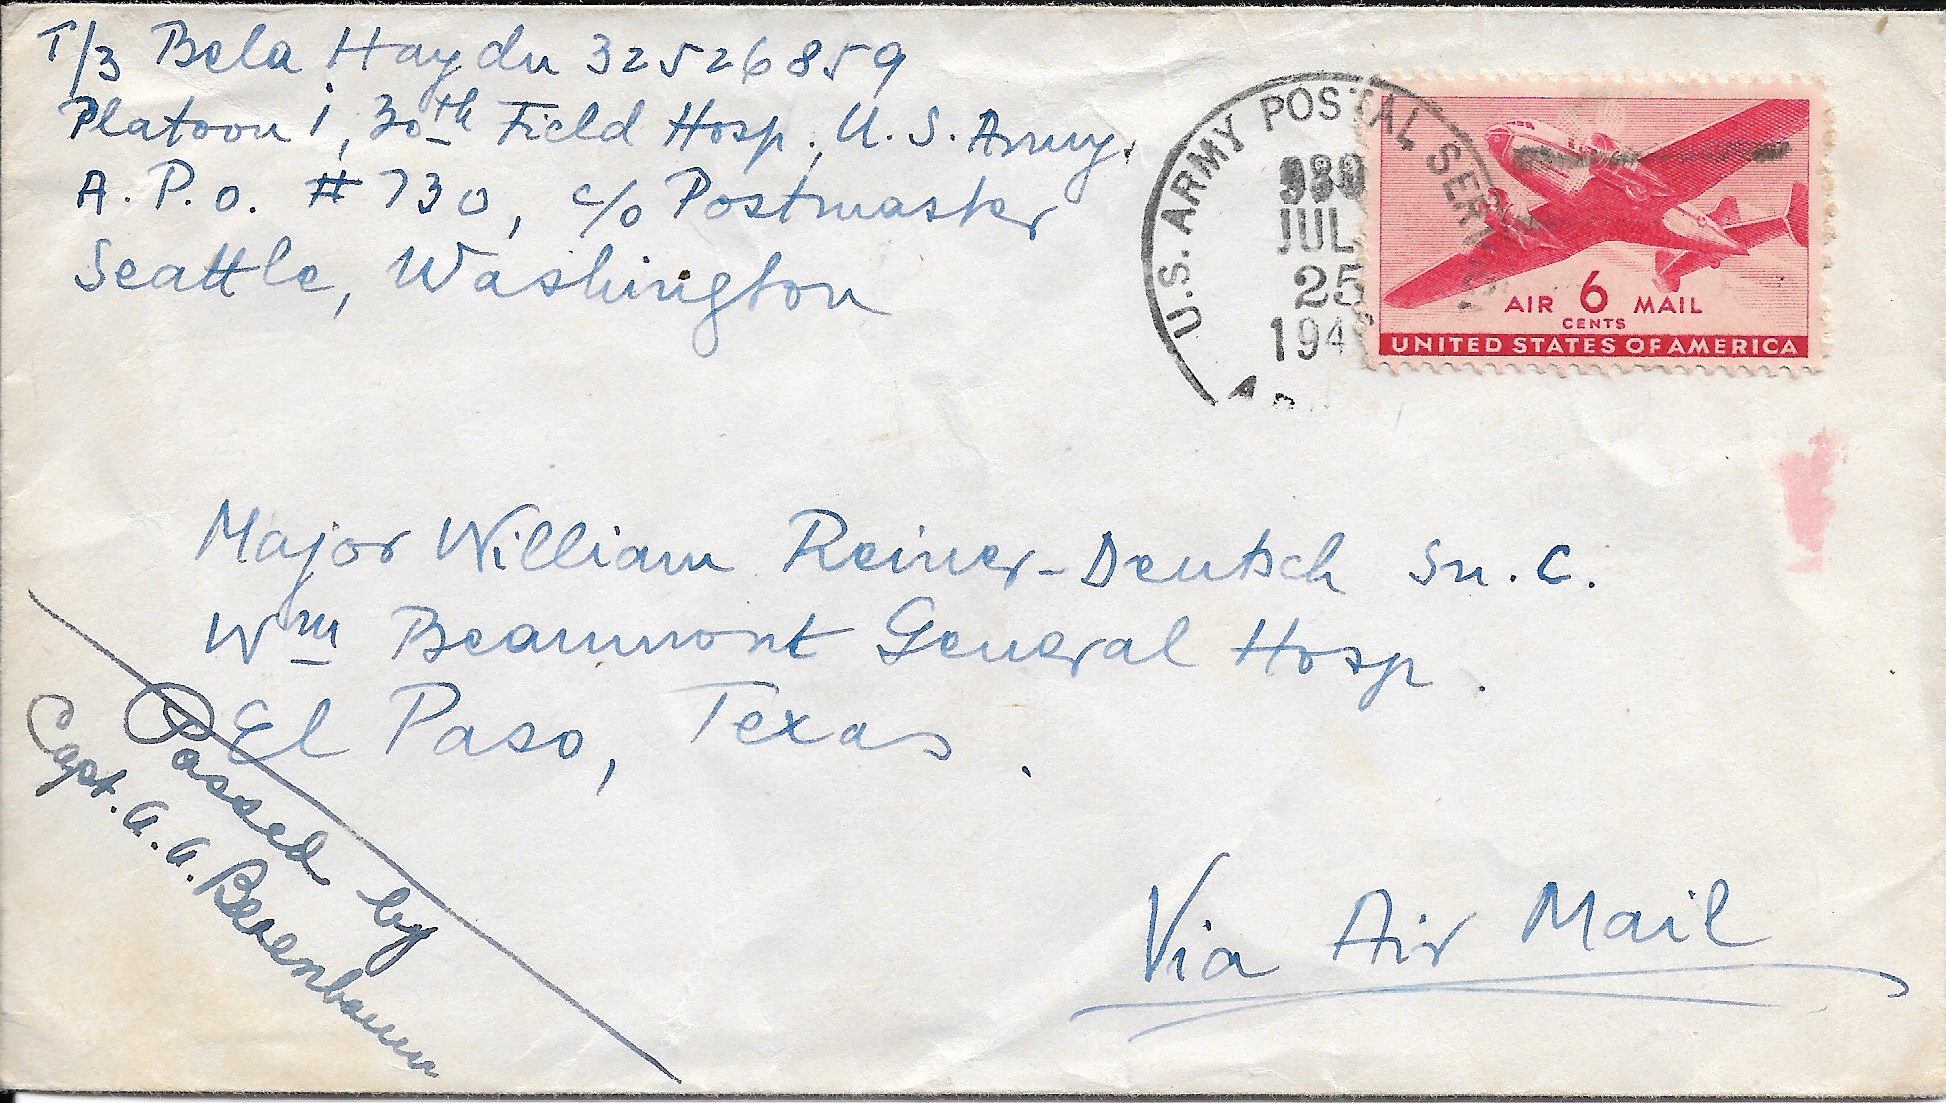 T/3 Bela Haydu 32526859
Platoon 1, 30th Field Hosp., U.S. Army.
A.P.O. #730, c/o Postmaster
Seattle, Washington
U.S. ARMY POSTAL SERVICE
JUL
25
194
AIR 6 MAIL
CENTS
UNITED STATES OF AMERICA
Major William Reiner-Deutsch Sn.C.
Wm Beaumont General Hosp.
El Paso, Texas.
Passed by
Capt. A. A. Berenbaum
Via Air Mail